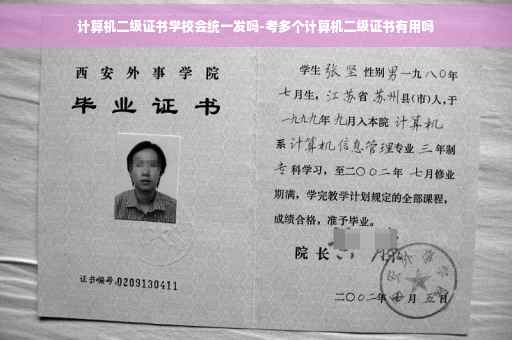 计算机二级证书学校会统一发吗-考多个计算机二级证书有用吗
西安外事学院
毕业证书
证书编号:0209130411
学生 张坚 性别 男 一九八〇年
七月生，江苏省 苏州县(市)人,于
一九九九年 九月入本院 计算机
系 计算机信息管理专业 三 年制
专科学习，至二〇〇二年 七月修业
期满，学完教学计划规定的全部课程，
成绩合格，准予毕业。
院长
二〇〇二年 月 五日